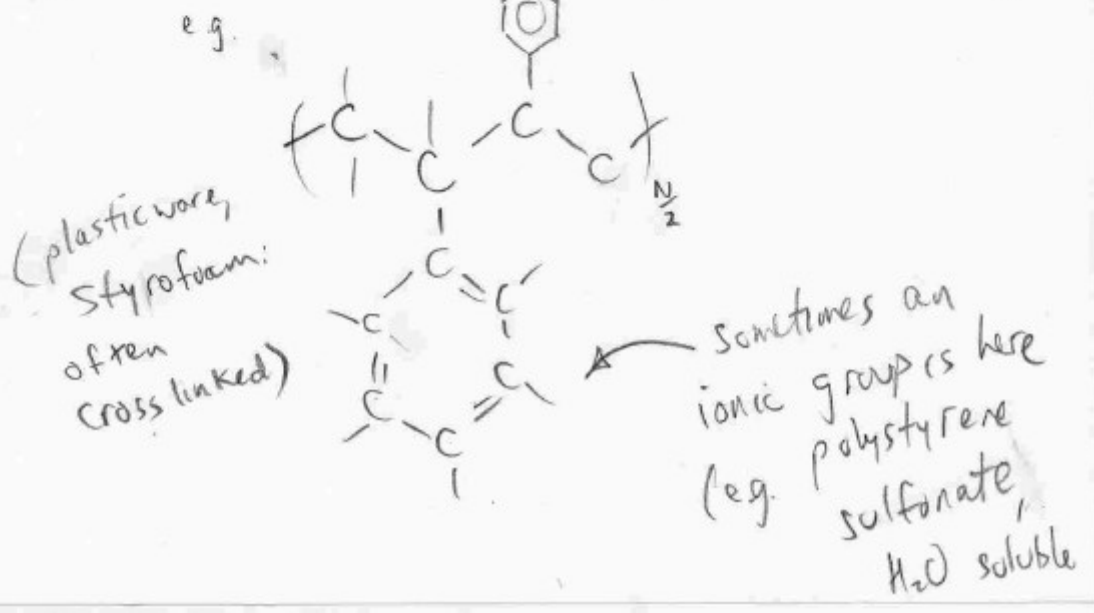 e.g.
C
C
C
C
N/2
(plasticware,
Styrofoam:
often
cross linked)
C
C
C
C
C
C
sometimes an
ionic group is here
(e.g. polystyrene
sulfonate,
H₂O soluble